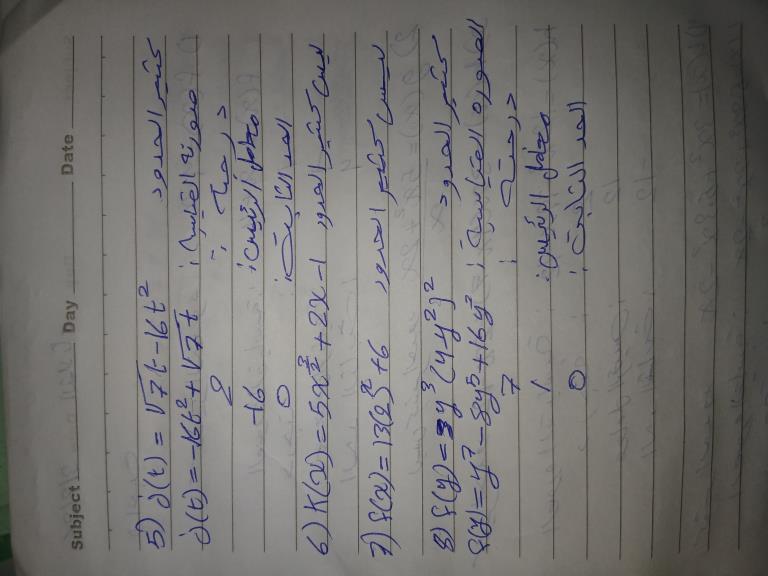 Subject Day Date
5) j(t) = √7t - 16t² كثير الحدود
j(t) = -16t² + √7t صورته القياسية:
2 درجته:
-16 معامل الرئيس:
0 الحد الثابت:
6) K(x) = 5x^(3/2) + 2x - 1 ليس كثير الحدود
7) f(x) = 13(2)^x + 6 ليس كثير الحدود
8) f(y) = y³(4-y²)² كثير الحدود
f(y) = y⁷ - 8y⁵ + 16y³ الصورة القياسية:
7 درجته:
1 معامل الرئيس:
0 الحد الثابت: